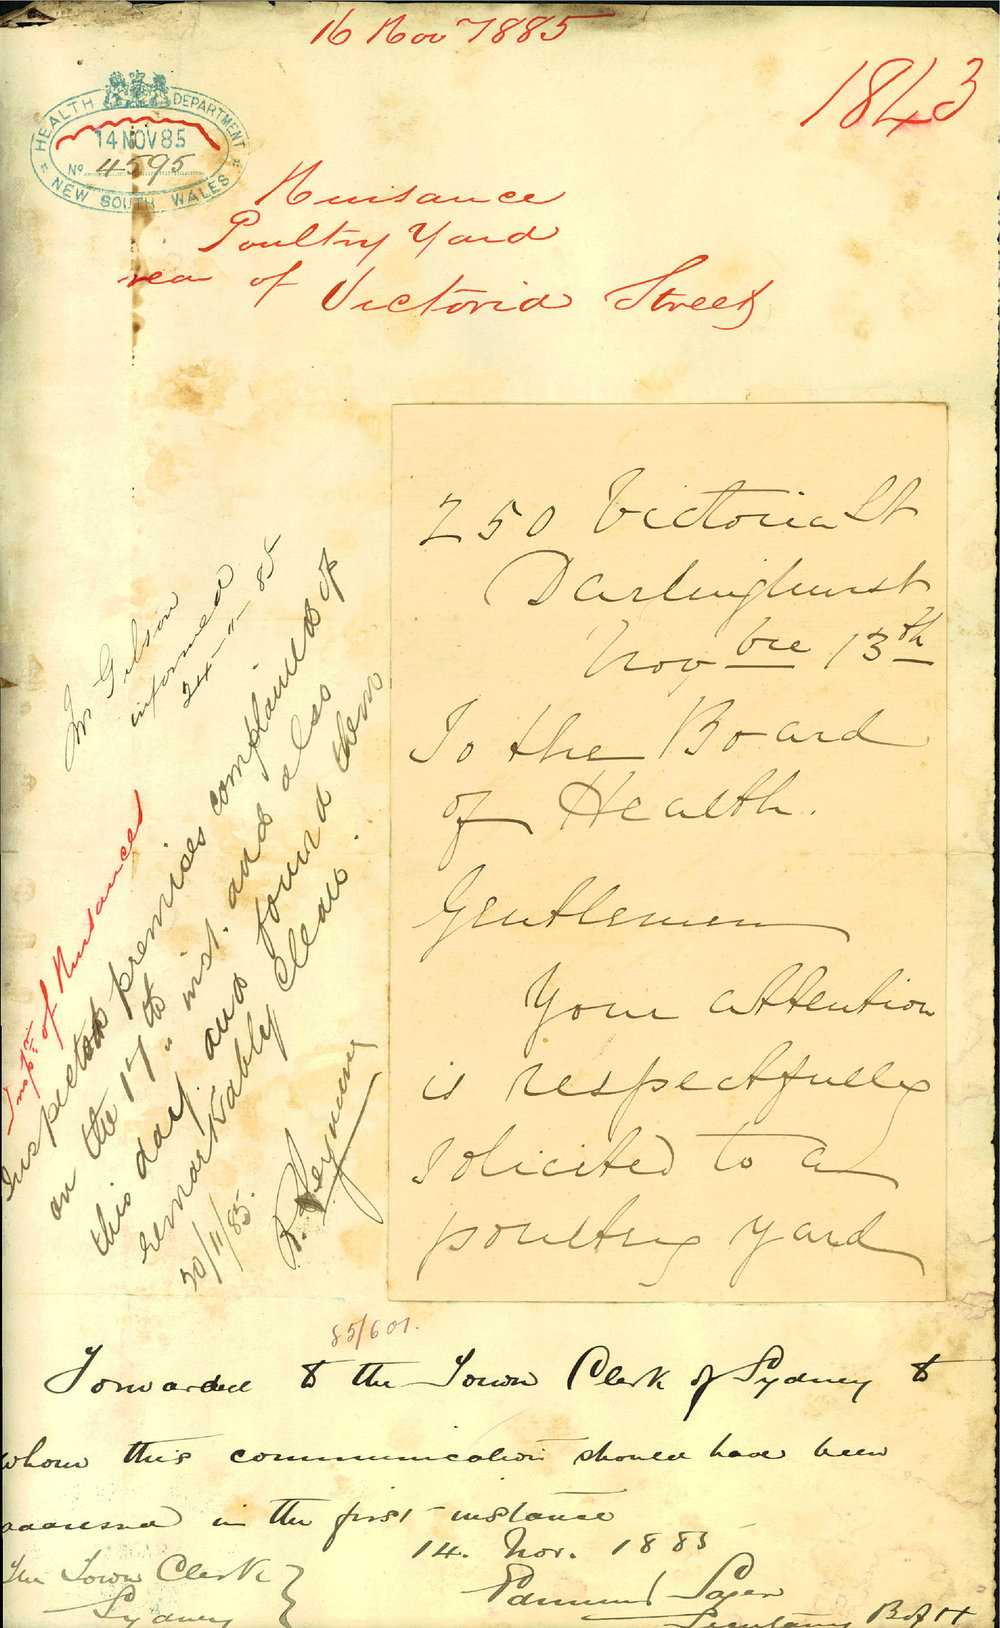 16 Nov 1885
1843
HEALTH DEPARTMENT
14 NOV 85
No 4595
NEW SOUTH WALES
Nuisance
Poultry Yard
rear of Victoria Street
250 Victoria St
Darlinghurst
Novbre 13th
To the Board
of Health.
Gentlemen
Your attention
is respectfully
solicited to a
poultry yard
Mr Gilson
informed
24-11-85
Inspr. of Nuisances
Inspected premises complained of
on the 17th inst. and also
this day and found them
remarkably clean.
20/11/85. R. Seymour
85/601.
Forwarded to the Town Clerk of Sydney to
whom this communication should have been
addressed in the first instance
14. Nov. 1885
The Town Clerk
Sydney
Edmund Sager
Secretary B of H